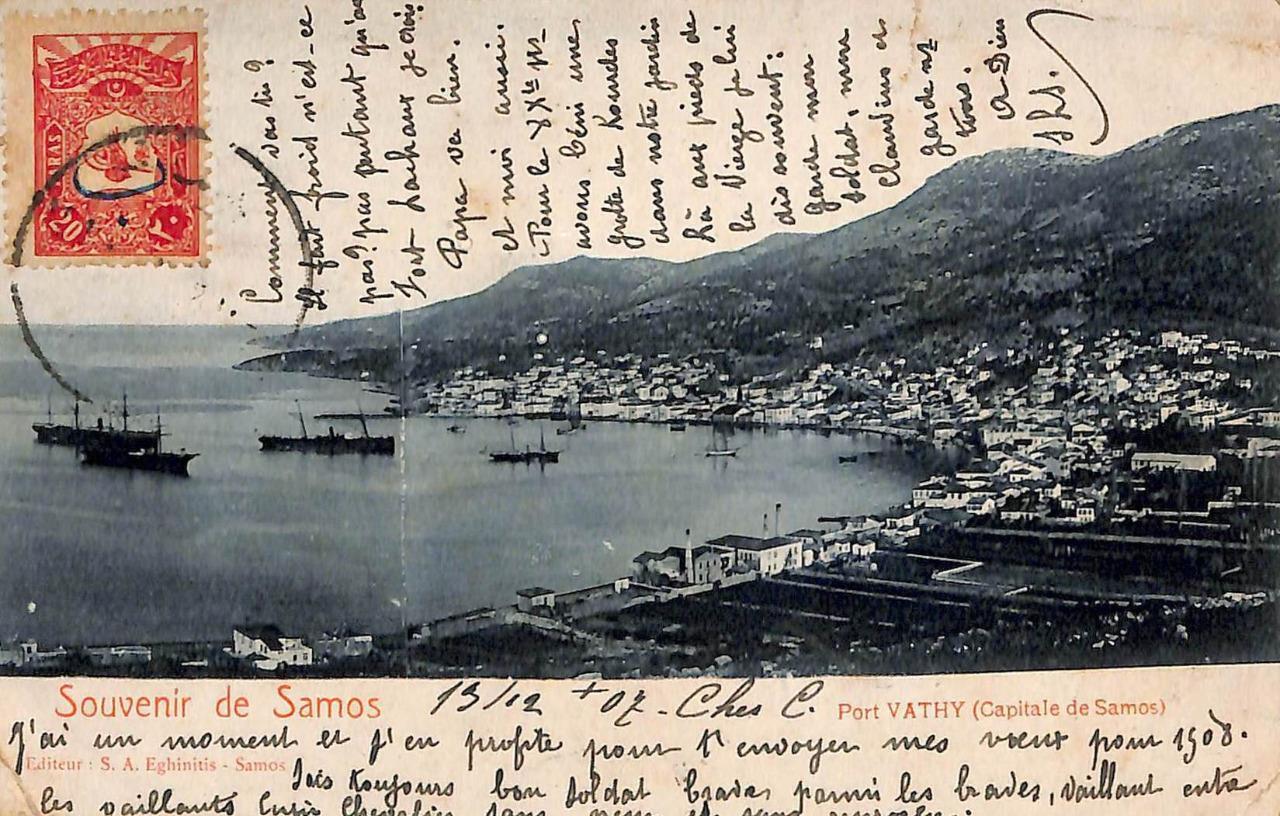 20
PARAS
٢٠
Souvenir de Samos
13/12 + 07 - Cher C.
Port VATHY (Capitale de Samos)
J'ai un moment et j'en profite pour t'envoyer mes vœux pour 1908.
Editeur : S. A. Eghinitis - Samos
Sois toujours bon soldat brave parmi les braves, vaillant entre
les vaillants
sans peur et sans
Comment vas-tu?
Il fait froid n'est-ce
pas? pas pourtant qu'au
Fort je crois
Papa va bien.
et moi aussi.
Pour le
avons béni une
grotte de Lourdes
dans notre jardin
Là aux pieds de
la Vierge je lui
dis souvent:
garde mon
soldat, mon
Claudius et
garde
tous.
A Dieu